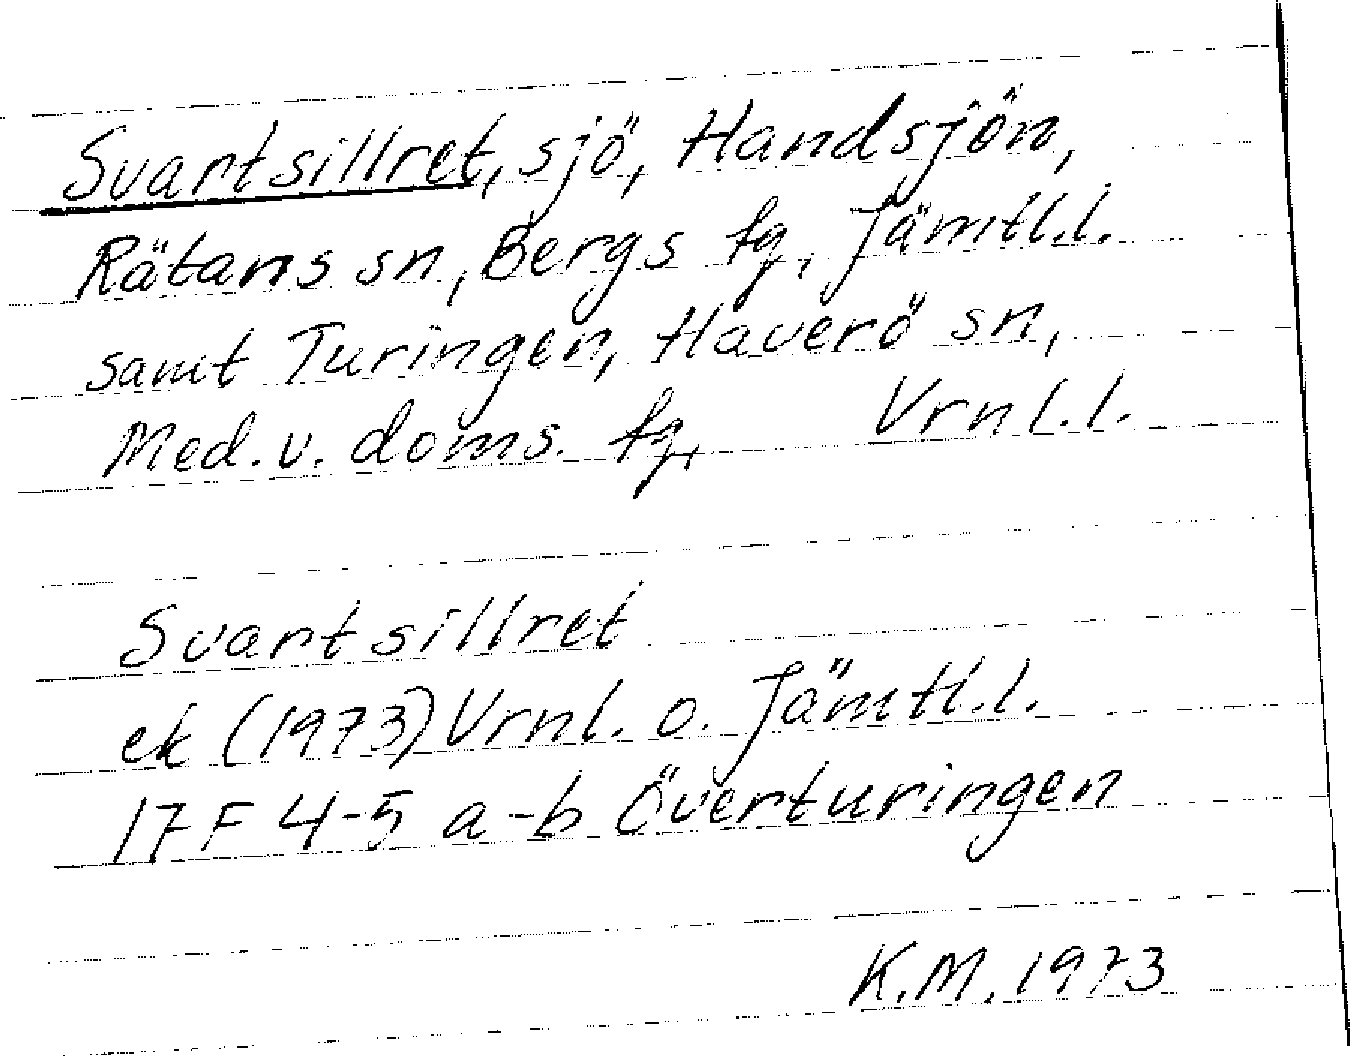 Svartsillret, sjö, Handsjön,
Rätans sn, Bergs tg, Jämtl.l.
samt Turingen, Haverö sn,
Med. v. doms. tg, Vrnl.l.
Svartsillret
ek (1973) Vrnl. o. Jämtl.l.
17F 4-5 a-b Överturingen
K.M. 1973